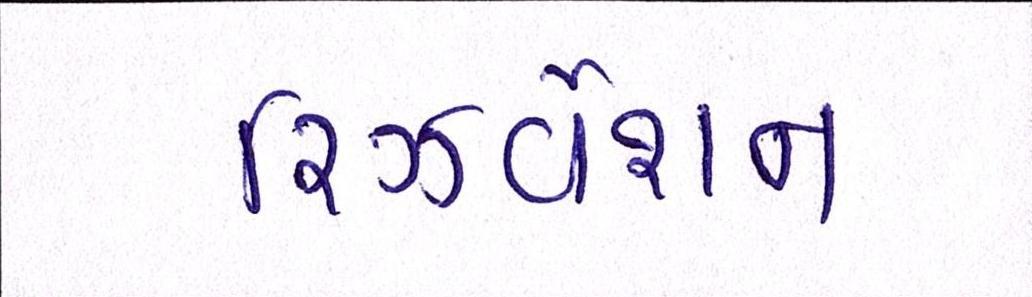 રિઝર્વેશન